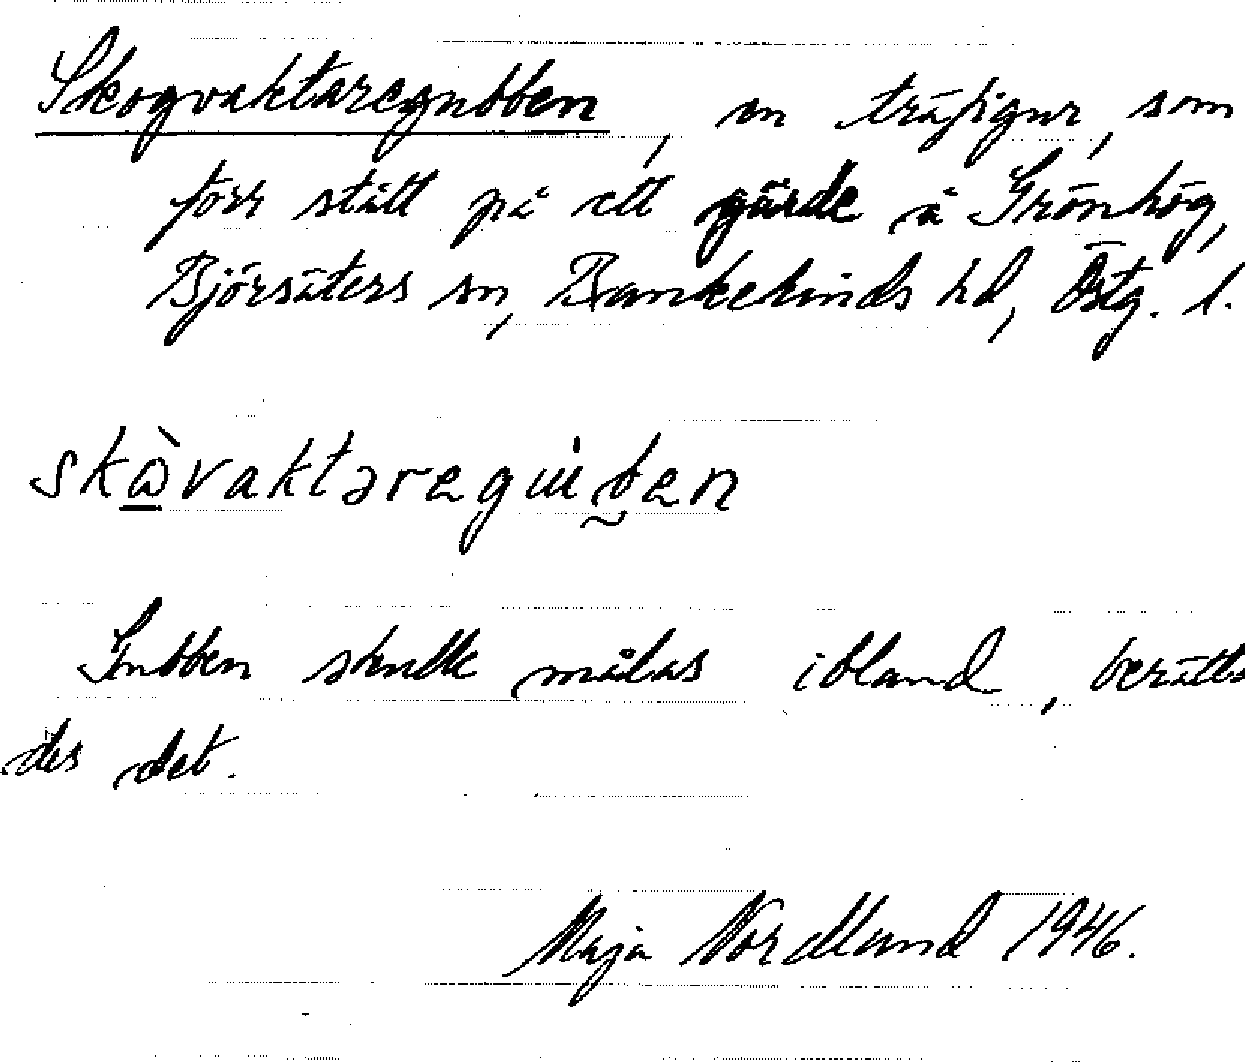 Skogvaktaregubben, en träfigur, som
förr stått på ett gärde å Grönhög,
Björsäters sn, Bankekinds hd, Östg. l.
Gubben skulle målas ibland, berätta-
des det.
Maja Nordlund 1946.